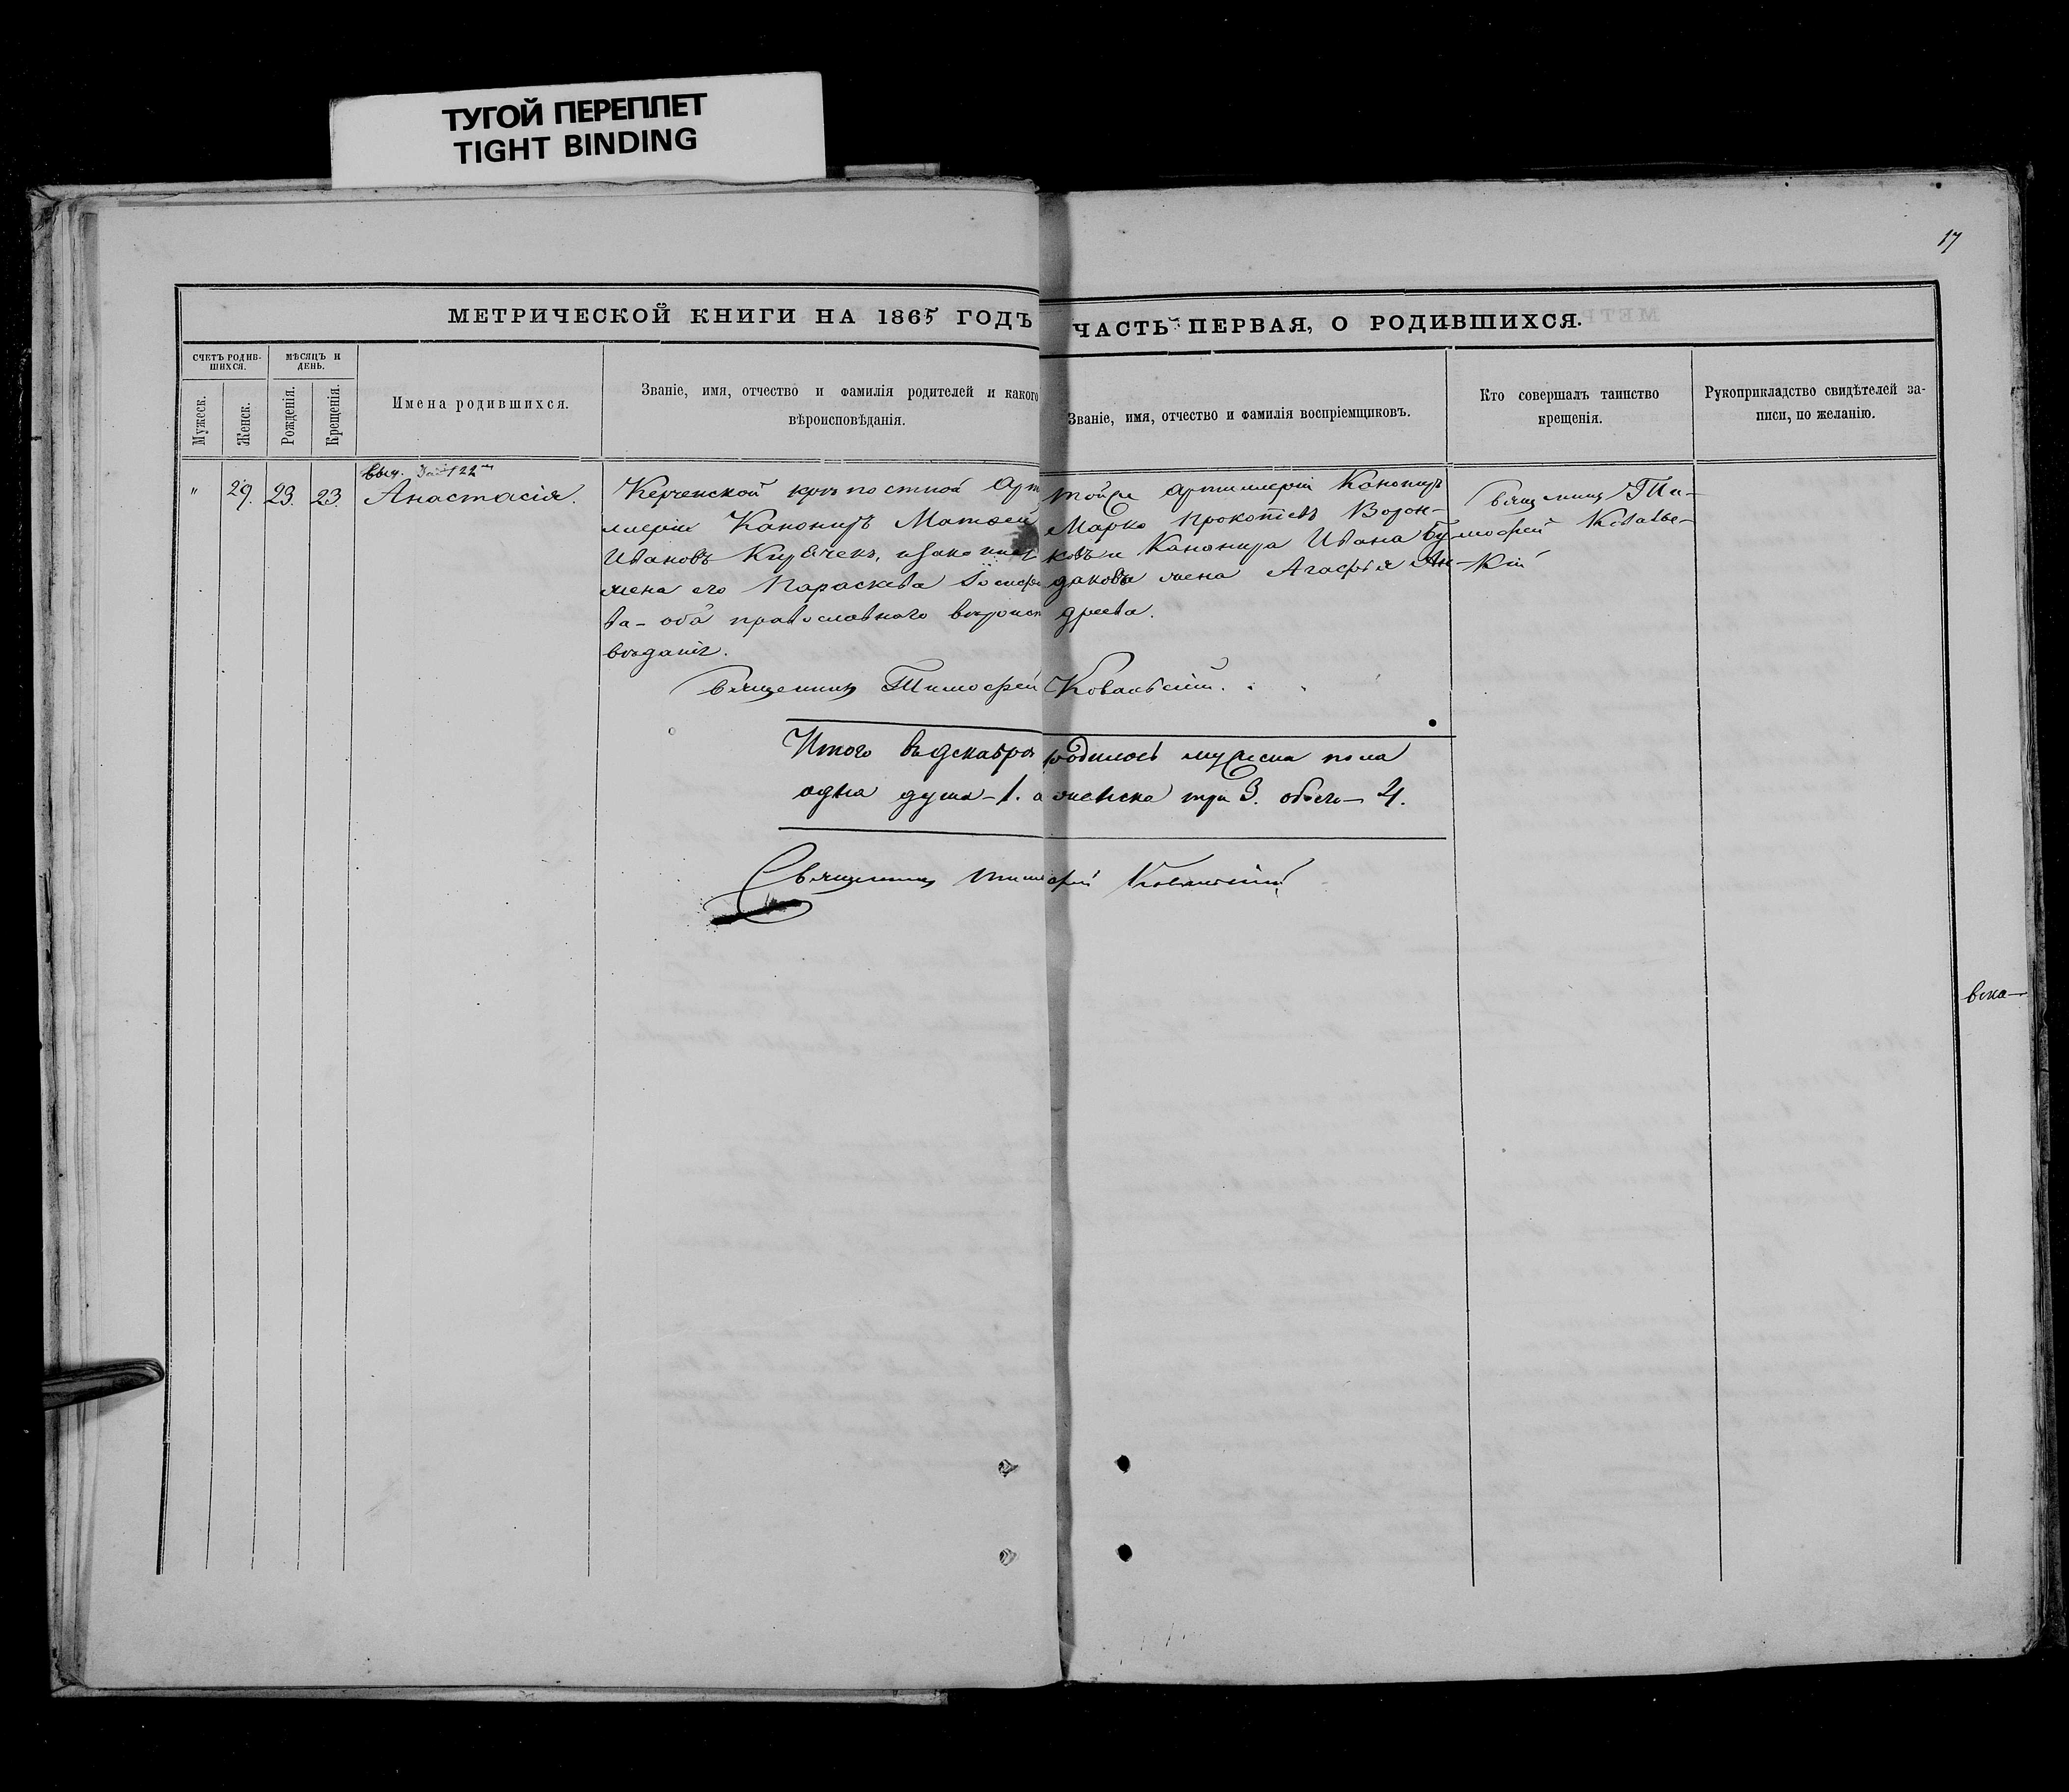 ТУГОЙ ПЕРЕПЛЕТ
TIGHT BINDING
17
МЕТРИЧЕСКОЙ КНИГИ НА 1865 ГОДЪ
ЧАСТЬ ПЕРВАЯ, О РОДИВШИХСЯ.
СЧЕТЪ РОДИВ-
ШИХСЯ.
Мужеск.
Женск.
МѢСЯЦЪ И
ДЕНЬ.
Рожденія.
Крещенія.
Имена родившихся.
Званіе, имя, отчество и фамилія родителей и какого
вѣроисповѣданія.
Званіе, имя, отчество и фамилія воспріемщиковъ.
Кто совершалъ таинство
крещенія.
Рукоприкладство свидѣтелей за-
писи, по желанію.
"
29.
23.
23.
Анастасія.
Керченской крѣпостной Арт
лерiи Канониръ Матвей
Ивановъ
жена его Параскева
ва - оба православнаго вѣроисп
вѣданія.
тойже Артиллеріи Канониръ
Марко Прокопіевъ Ворон-
ковъ и Канонира Ивана Бу
дакова жена Агафія Ан-
дреева.
Священникъ Ти-
мофей Ковалев-
кій
Священникъ Тимофей Ковальскій.
Итого въ декабрѣ родилось мужеска пола
одна душа - 1. а женска три 3. обоего - 4.
Священникъ Тимофей Ковальскій